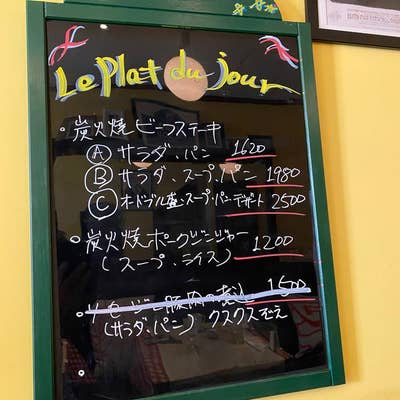 Le Plat du jour
・炭火焼ビーフステーキ
Ⓐ サラダ、パン 1620
Ⓑ サラダ、スープ、パン 1980
Ⓒ オードブル盛、スープ、パン、デザート 2500
・炭火焼ポークジンジャー
(スープ、ライス) 1200
・ソーセージと豚肉の煮込 1500
(サラダ、パン) クスクス添え